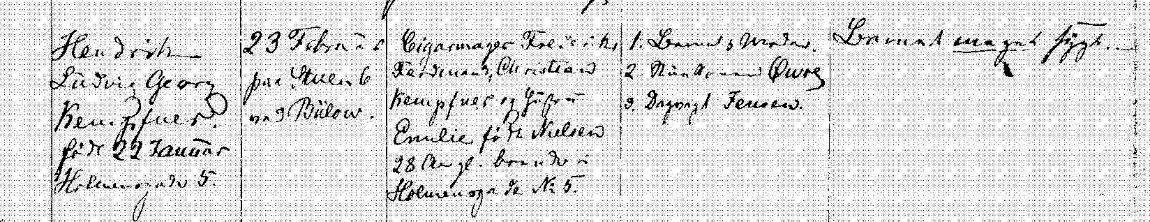 Hendrik
Ludvig Georg
Kempfner.
født 22 Januar
Holmensgade 5.
23 Februar
paa Stuen 6
ved Bülow.
Cigarmager Fredrik
Ferdinand Christian
Kempfner og Hustru
Emilie født Nielsen
28 Aar gl. boende i
Holmensgade No 5.
1. Barnets Moder.
2
3. Dagvagt Jensen.
Barnet meget sygt.